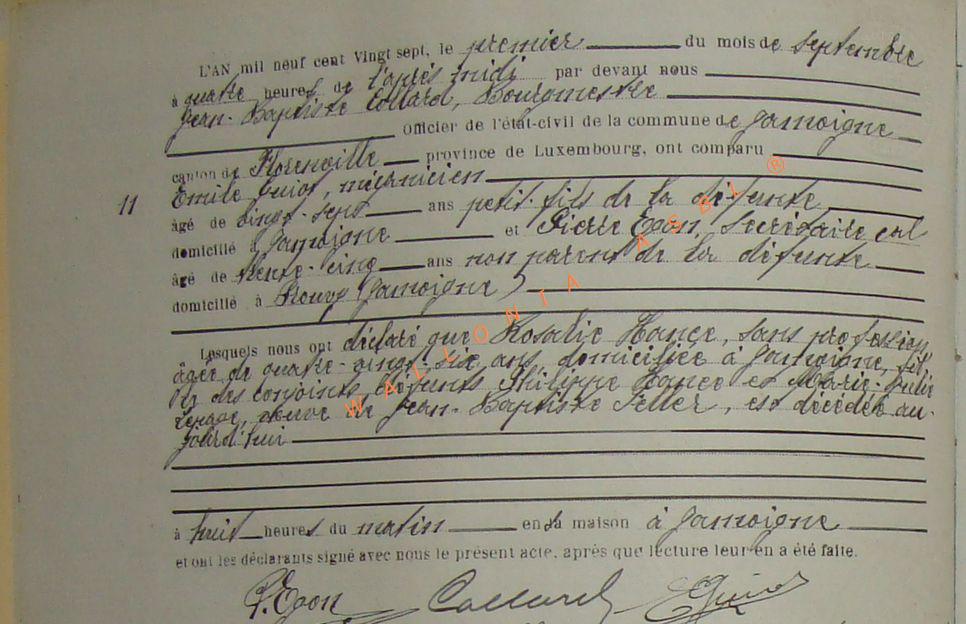 L'AN mil neuf cent Vingt sept, le premier du mois de septembre
à quatre heures de l'après midi par devant nous
Jean-Baptiste Collard, Bourgmestre
Officier de l'état-civil de la commune de Jamoigne
canton de Florenville province de Luxembourg, ont comparu
11 Emile Guiot, mécanicien
âgé de vingt-sept ans petit-fils de la défunte
domicilié à Jamoigne et Pierre Egon, Secrétaire cal
âgé de trente-cinq ans non parent de la défunte
domicilié à Prouvy (Jamoigne)
Lesquels nous ont déclaré que Rosalie Hance, sans profession,
âgée de quatre-vingt-six ans, domiciliée à Jamoigne, fil-
le des conjoints défunts Philippe Hance et Marie-Julie
veuve de Jean-Baptiste Feller, est décédée au-
jourd'hui
à huit heures du matin en sa maison à Jamoigne
et ont les déclarants signé avec nous le présent acte, après que lecture leur en a été faite.
P. Egon Collard EGuiot
WALLONIA ASBL ®